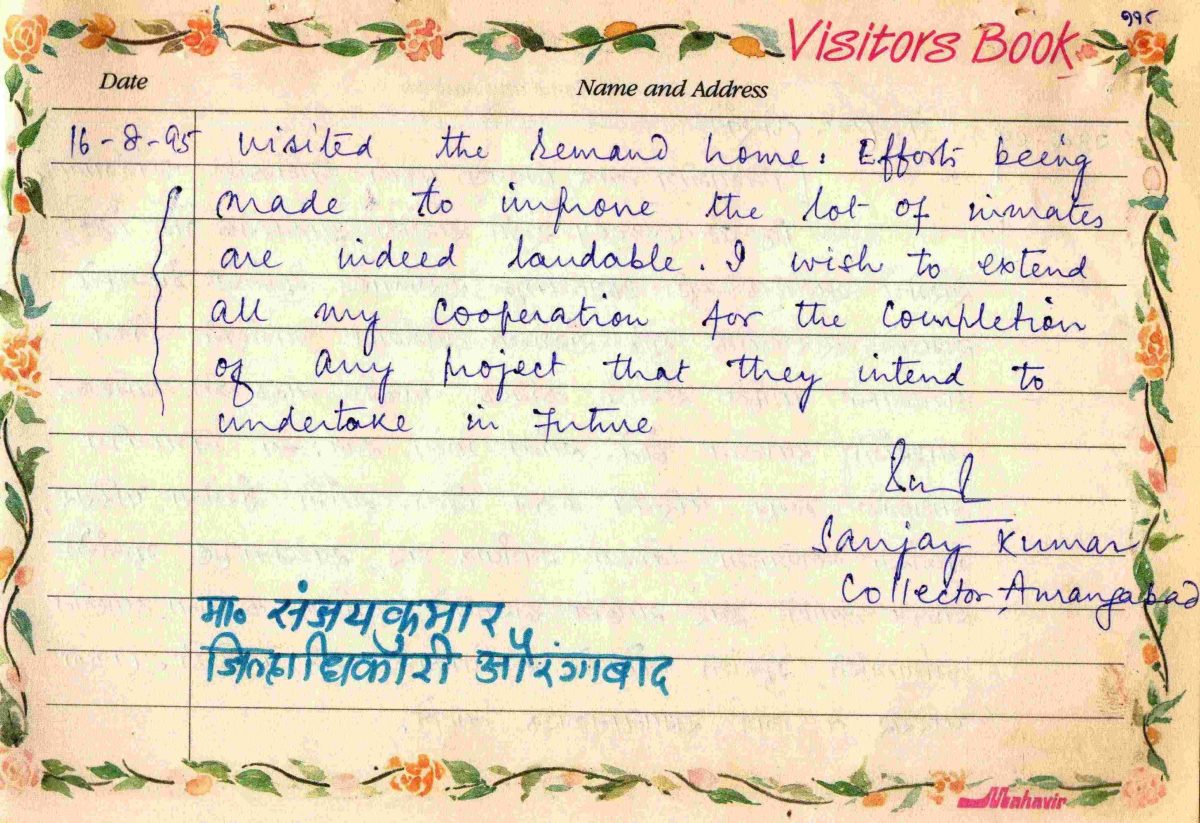 Visitors Book
११८
Date Name and Address
16-8-95 Visited the remand home. Efforts being
made to improve the lot of inmates
are indeed laudable. I wish to extend
all my cooperation for the completion
of any project that they intend to
undertake in future
Sanjay Kumar
Collector, Aurangabad
मा. संजयकुमार
जिल्हाधिकारी औरंगाबाद
Mahavir